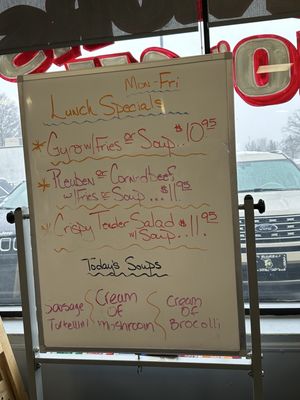 Mon-Fri
Lunch Specials
Gyro w/Fries or Soup.. $10.95
Reuben or Corn-d beef
w/Fries or Soup... $11.95
Crispy Tender Salad
w/Soup... $11.95
Today's Soups
Sausage Tortellini
Cream of Mushroom
Cream of Brocolli